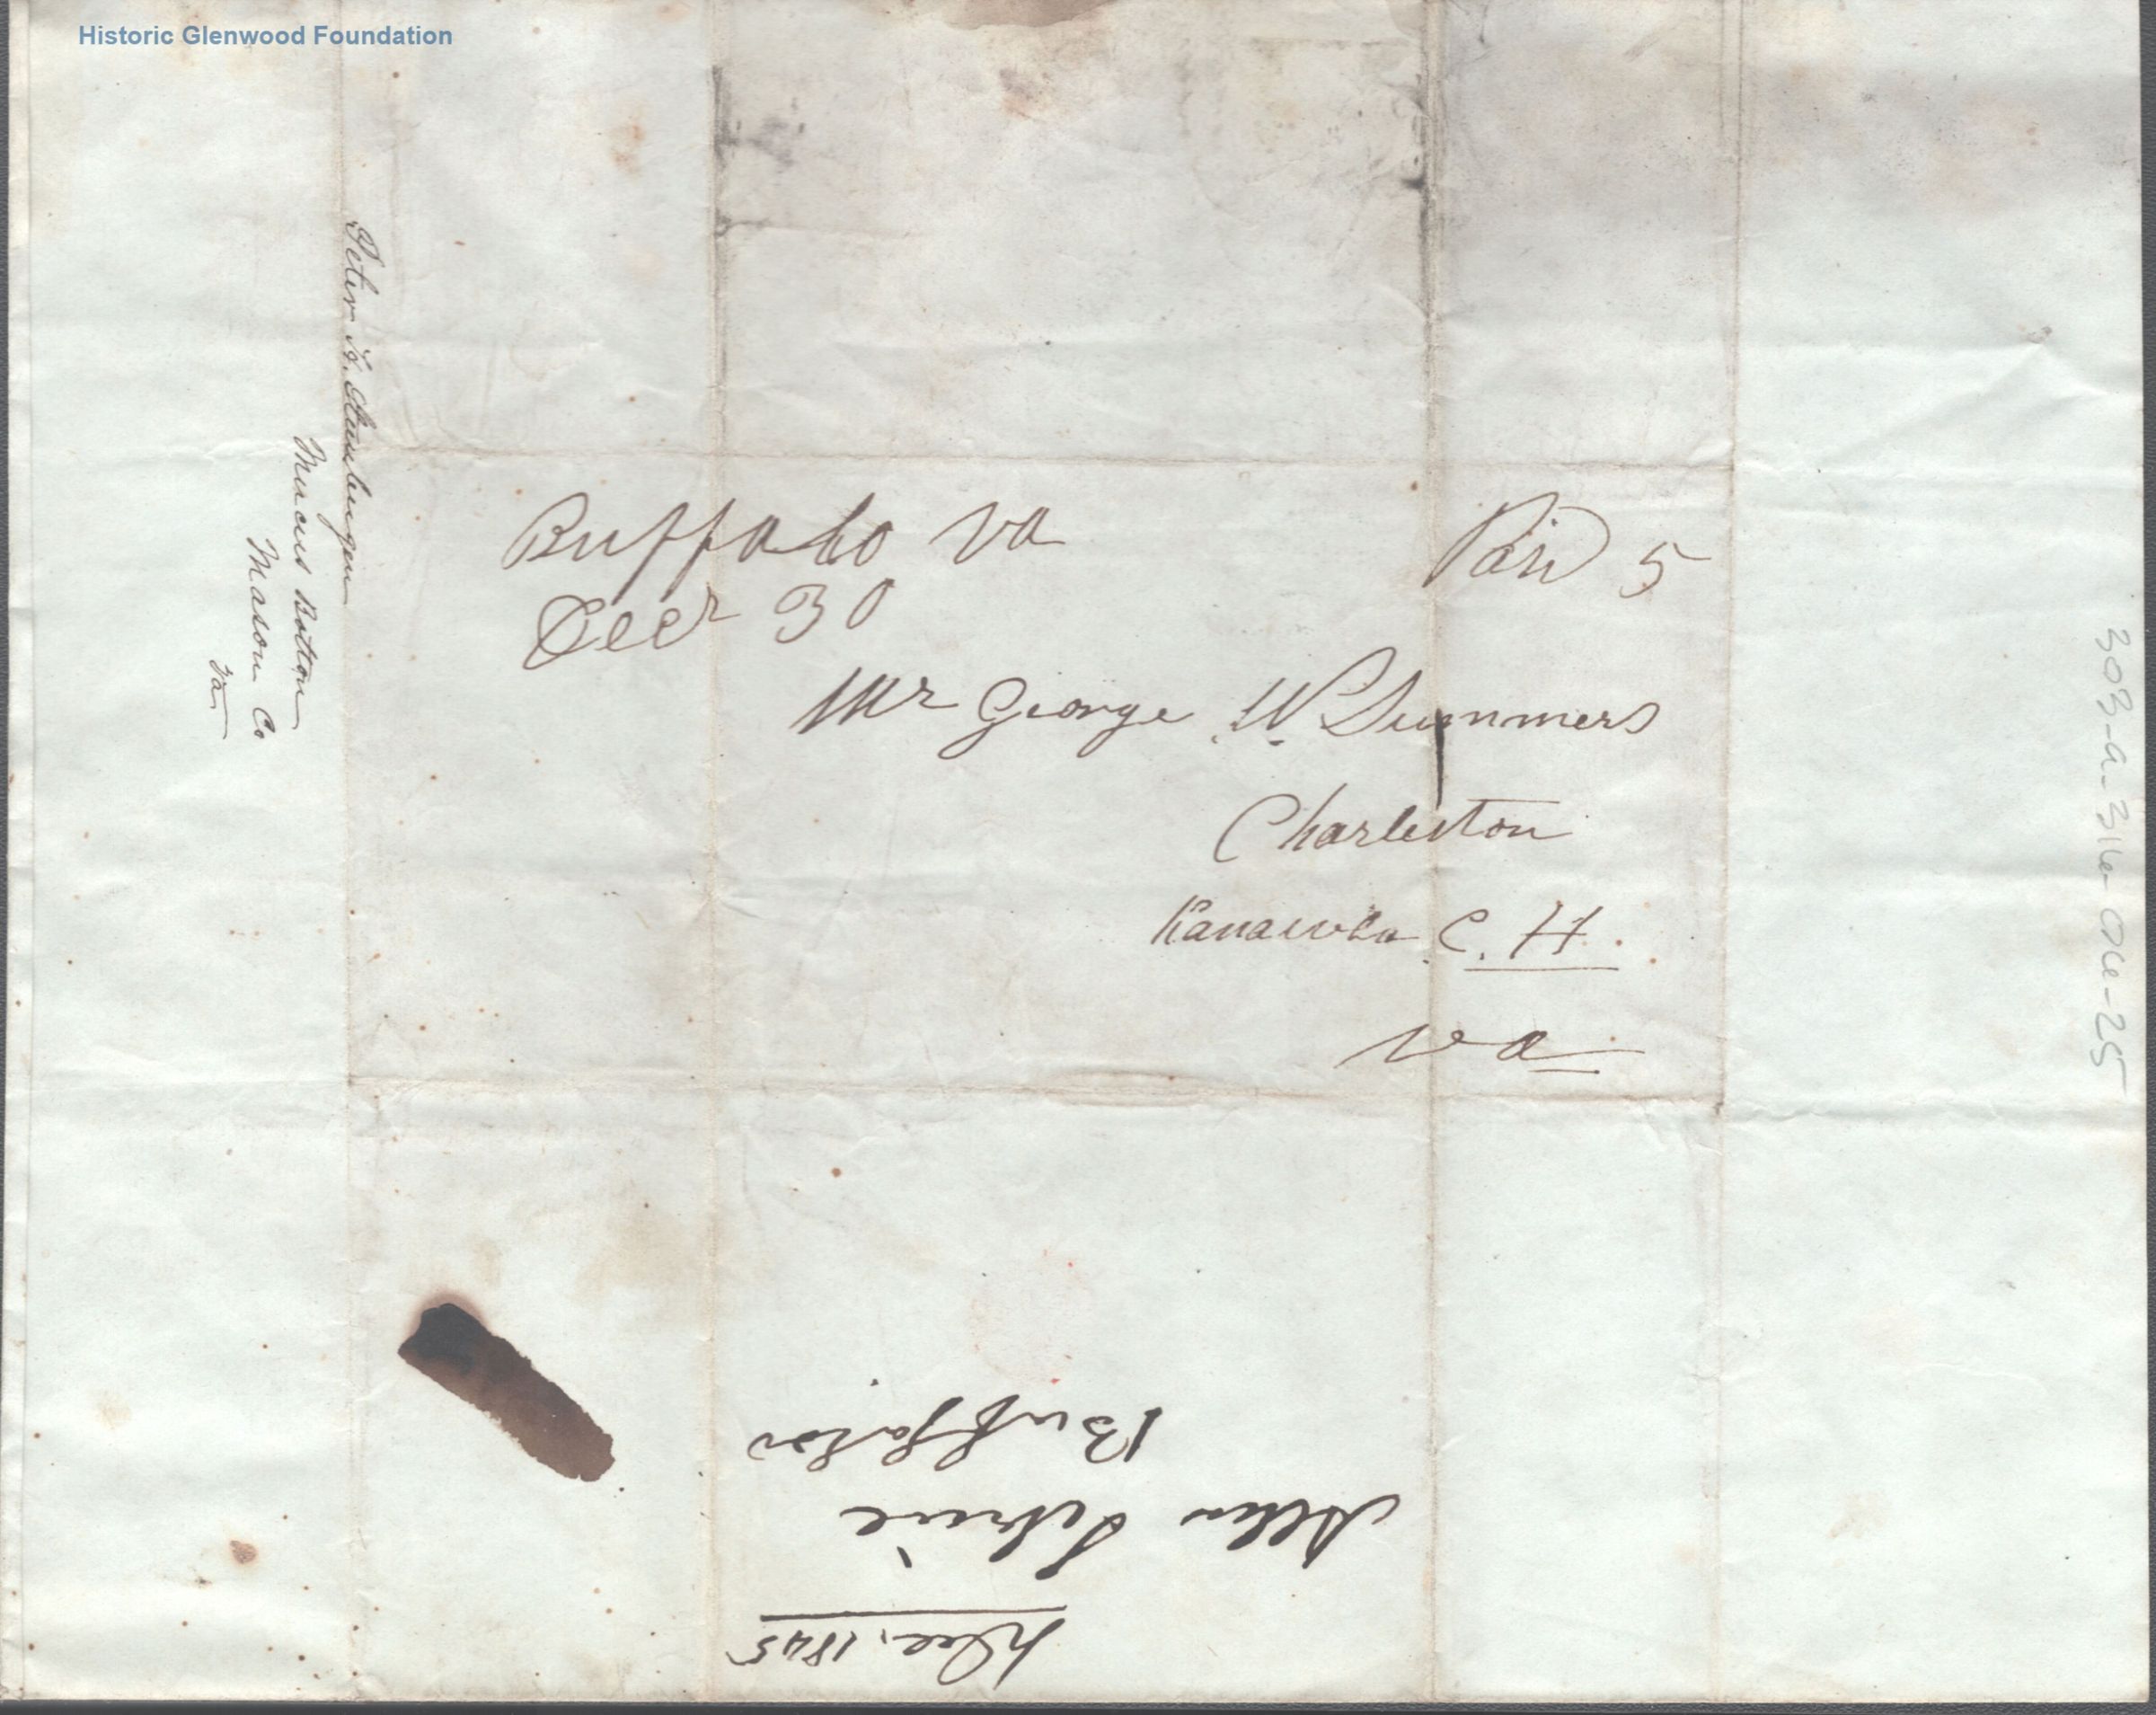 Historic Glenwood Foundation
Peter H. Steenbergen
Mercers Bottom
Mason Co
Va
Buffalo Va
Decr 30
Paid 5
Mr George W. Summers
Charleston
Kanawha C. H.
Va
303-a-316-
-25
Buffalo
Allen
Dec. 1845